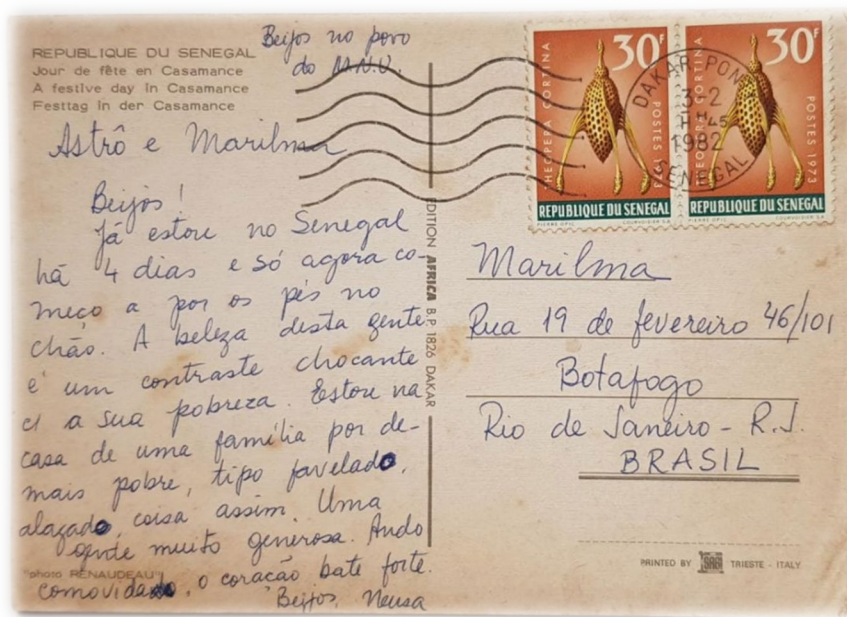 REPUBLIQUE DU SENEGAL
Jour de fête en Casamance
A festive day in Casamance
Festtag in der Casamance
Beijos no povo
do M.N.U.
Astrô e Marilma
Beijos!
Já estou no Senegal
há 4 dias e só agora co-
meço a por os pés no
chão. A beleza desta gente
é um contraste chocante
c/ a sua pobreza. Estou na
casa de uma família por de-
mais pobre, tipo favelado,
alagado, coisa assim. Uma
gente muito generosa. Ando
"photo RENAUDEAU"
comovida, o coração bate forte.
Beijos, Neusa
EDITION AFRICA B.P. 1826 DAKAR
30F
THEOPERA CORTINA
POSTES 1973
REPUBLIQUE DU SENEGAL
PIERRE OFIC COURVOISIER SA
30F
THEOPERA CORTINA
POSTES 1973
REPUBLIQUE DU SENEGAL
COURVOISIER SA
DAKAR-PONT
3-2
1982
SENEGAL
Marilma
Rua 19 de fevereiro 46/101
Botafogo
Rio de Janeiro - R.J.
BRASIL
PRINTED BY TRIESTE - ITALY